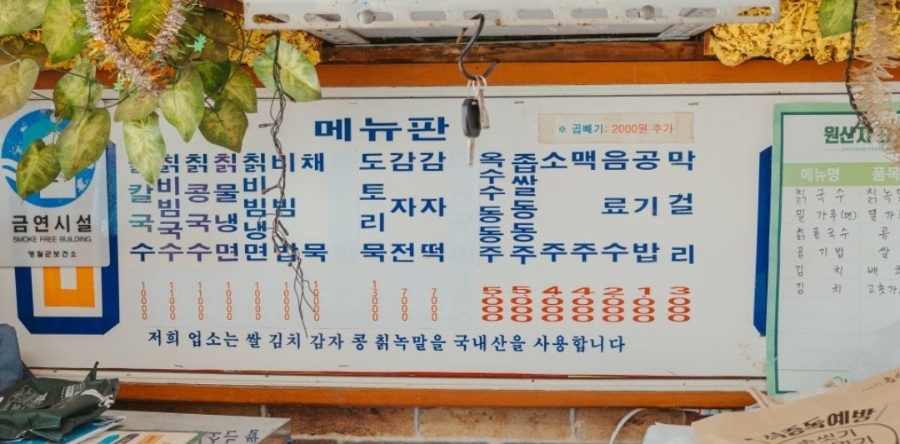 메뉴판
※ 곱빼기: 2000원 추가
칡칼국수
칡비빔국수
칡콩국수
칡물냉면
칡비빔냉면
비빔밥
채묵
도토리묵
감자전 7000
감자떡 7000
옥수수동동주 5000
좁쌀동동주 5000
소주 4000
맥주 4000
음료수 2000
공기밥 1000
막걸리 3000
저희 업소는 쌀 김치 감자 콩 칡녹말을 국내산을 사용합니다
금연시설
SMOKE FREE BUILDING
영월군보건소
원산지
메뉴명 품목
칡국수
밀가루(면)
칡콩국수 콩
공기밥 쌀
김치 배
김치 고춧가
중독예방